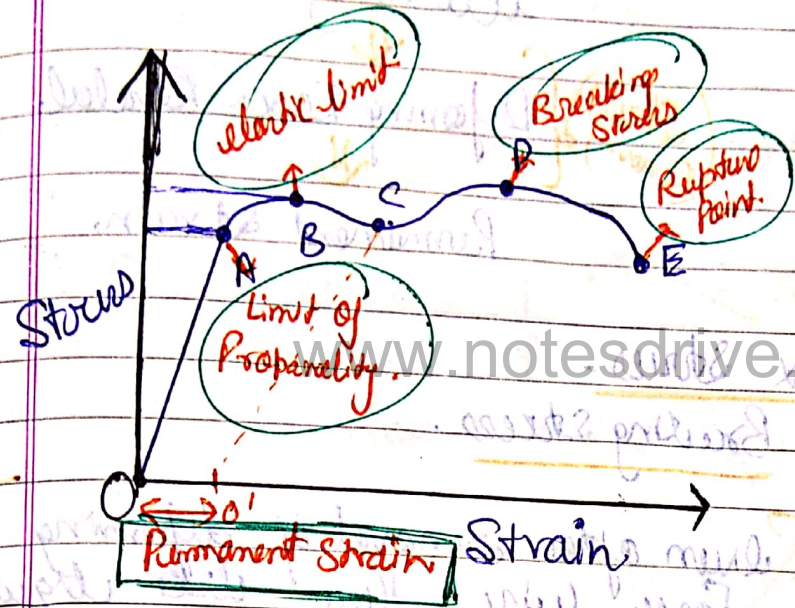 elastic limit
Breaking
Stress
D
Rupture
Point.
C
B
A
E
Stress
Limit of
Propanality.
www.notesdrive.
O
O'
Permanent Strain
Strain